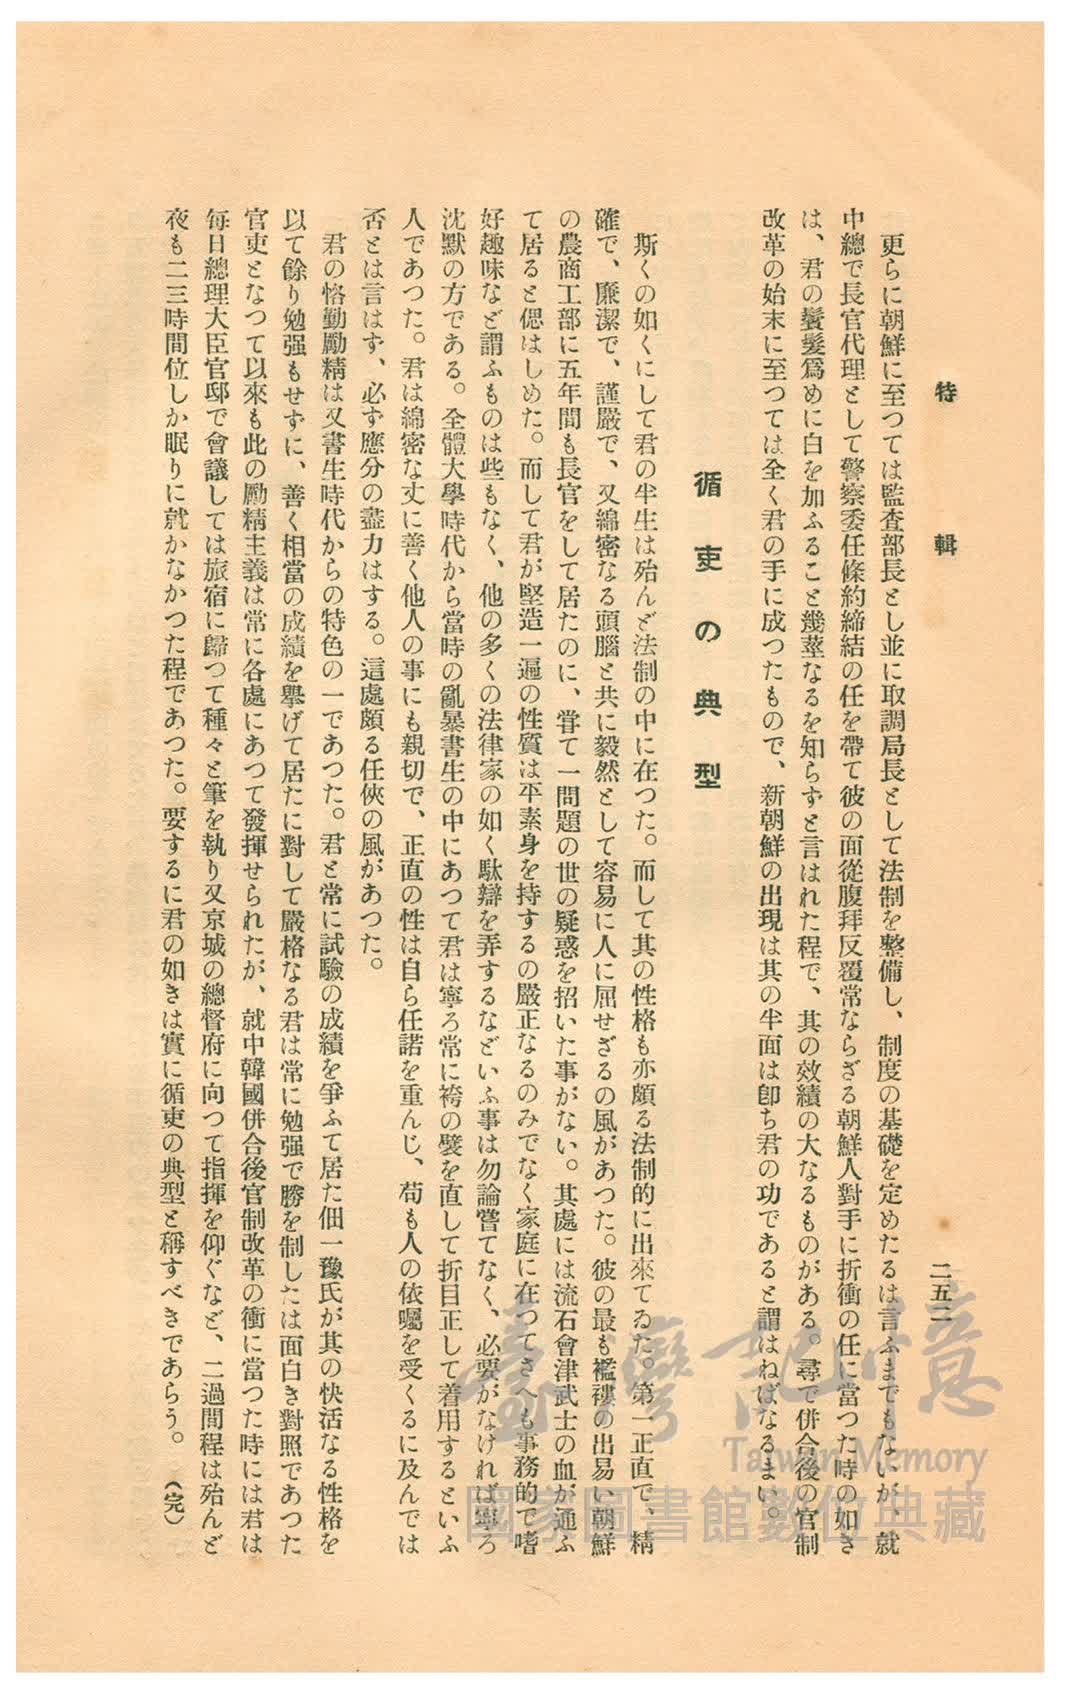 特輯
二五二
更らに朝鮮に至つては監査部長とし並に取調局長として法制を整備し、制度の基礎を定めたるは言ふまでもないが、就
中總で長官代理として警察委任條約締結の任を帶て彼の面從腹拜反覆常ならざる朝鮮人對手に折衝の任に當つた時の如き
は、君の鬢髮爲めに白を加ふること幾莖なるを知らずと言はれた程で、其の效績の大なるものがある。尋で併合後の官制
改革の始末に至つては全く君の手に成つたもので、新朝鮮の出現は其の半面は卽ち君の功であると謂はねばなるまい。
循吏の典型
斯くの如くにして君の半生は殆んど法制の中に在つた。而して其の性格も亦頗る法制的に出來てゐた。第一正直で、精
確で、廉潔で、謹嚴で、又綿密なる頭腦と共に毅然として容易に人に屈せざるの風があつた。彼の最も襤褸の出易い朝鮮
の農商工部に五年間も長官をして居たのに、甞て一問題の世の疑惑を招いた事がない。其處には流石會津武士の血が通ふ
て居ると偲はしめた。而して君が堅造一遍の性質は平素身を持するの嚴正なるのみでなく家庭に在つてさへも事務的で嗜
好趣味など謂ふものは些もなく、他の多くの法律家の如く駄辯を弄するなどいふ事は勿論嘗てなく、必要がなければ寧ろ
沈默の方である。全體大學時代から當時の亂暴書生の中にあつて君は寧ろ常に袴の襞を直して折目正して着用するといふ
人であつた。君は綿密な丈に善く他人の事にも親切で、正直の性は自ら任諾を重んじ、苟も人の依囑を受くるに及んでは
否とは言はず、必ず應分の盡力はする。這處頗る任俠の風があつた。
君の恪勤勵精は又書生時代からの特色の一であつた。君と常に試驗の成績を爭ふて居た佃一豫氏が其の快活なる性格を
以て餘り勉强もせずに、善く相當の成績を擧げて居たに對して嚴格なる君は常に勉强で勝を制したは面白き對照であつた
官吏となつて以來も此の勵精主義は常に各處にあつて發揮せられたが、就中韓國併合後官制改革の衝に當つた時には君は
每日總理大臣官邸で會議しては旅宿に歸つて種々と筆を執り又京城の總督府に向つて指揮を仰ぐなど、二過間程は殆んど
夜も二三時間位しか眠りに就かなかつた程であつた。要するに君の如きは實に循吏の典型と稱すべきであらう。（完）
臺灣記憶
Taiwan Memory
國家圖書館數位典藏